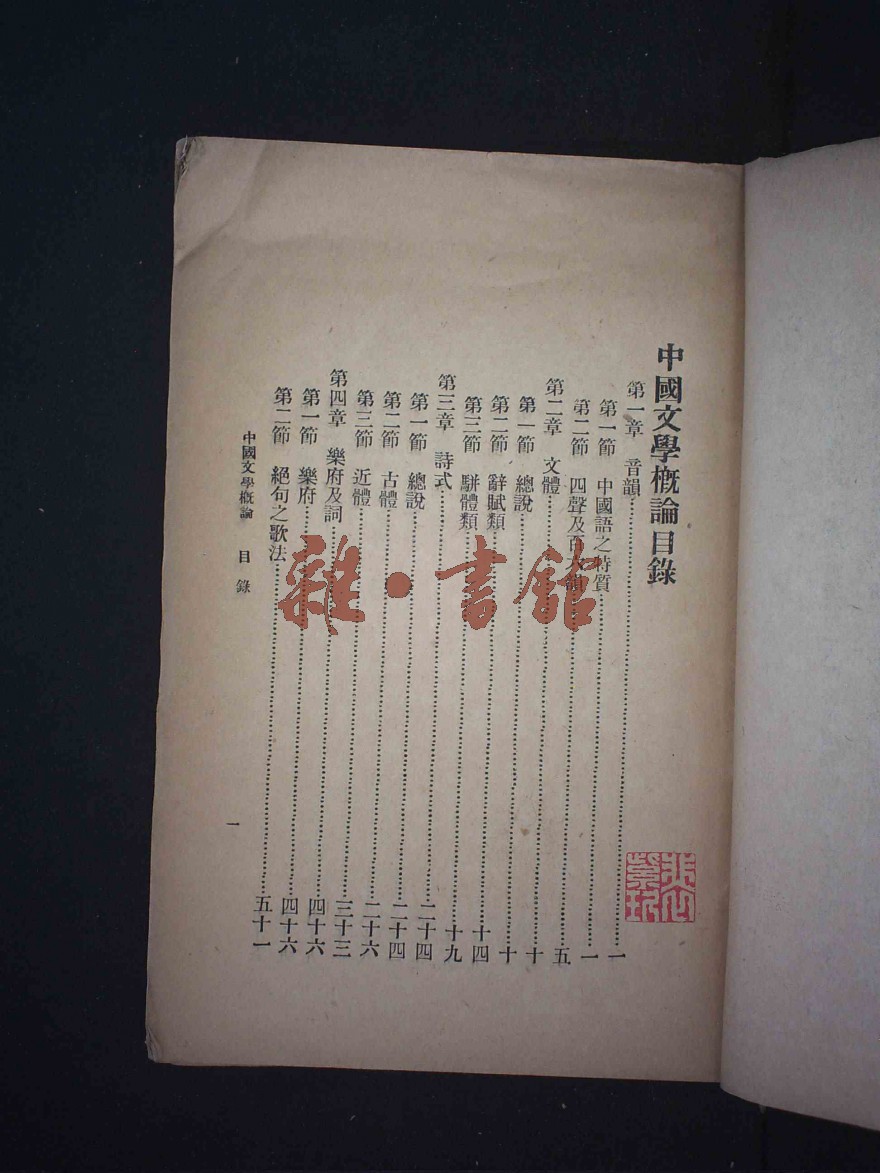 中國文學概論目錄
第一章　音韻……一
第一節　中國語之特質……一
第二節　四聲及百六韻……五
第二章　文體……十
第一節　總說……十
第二節　辭賦類……十四
第三節　駢體類……十九
第三章　詩式……二十四
第一節　總說……二十四
第二節　古體……二十六
第三節　近體……三十三
第四章　樂府及詞……四十六
第一節　樂府……四十六
第二節　絕句之歌法……五十一
中國文學概論　目錄
一
雜·書館